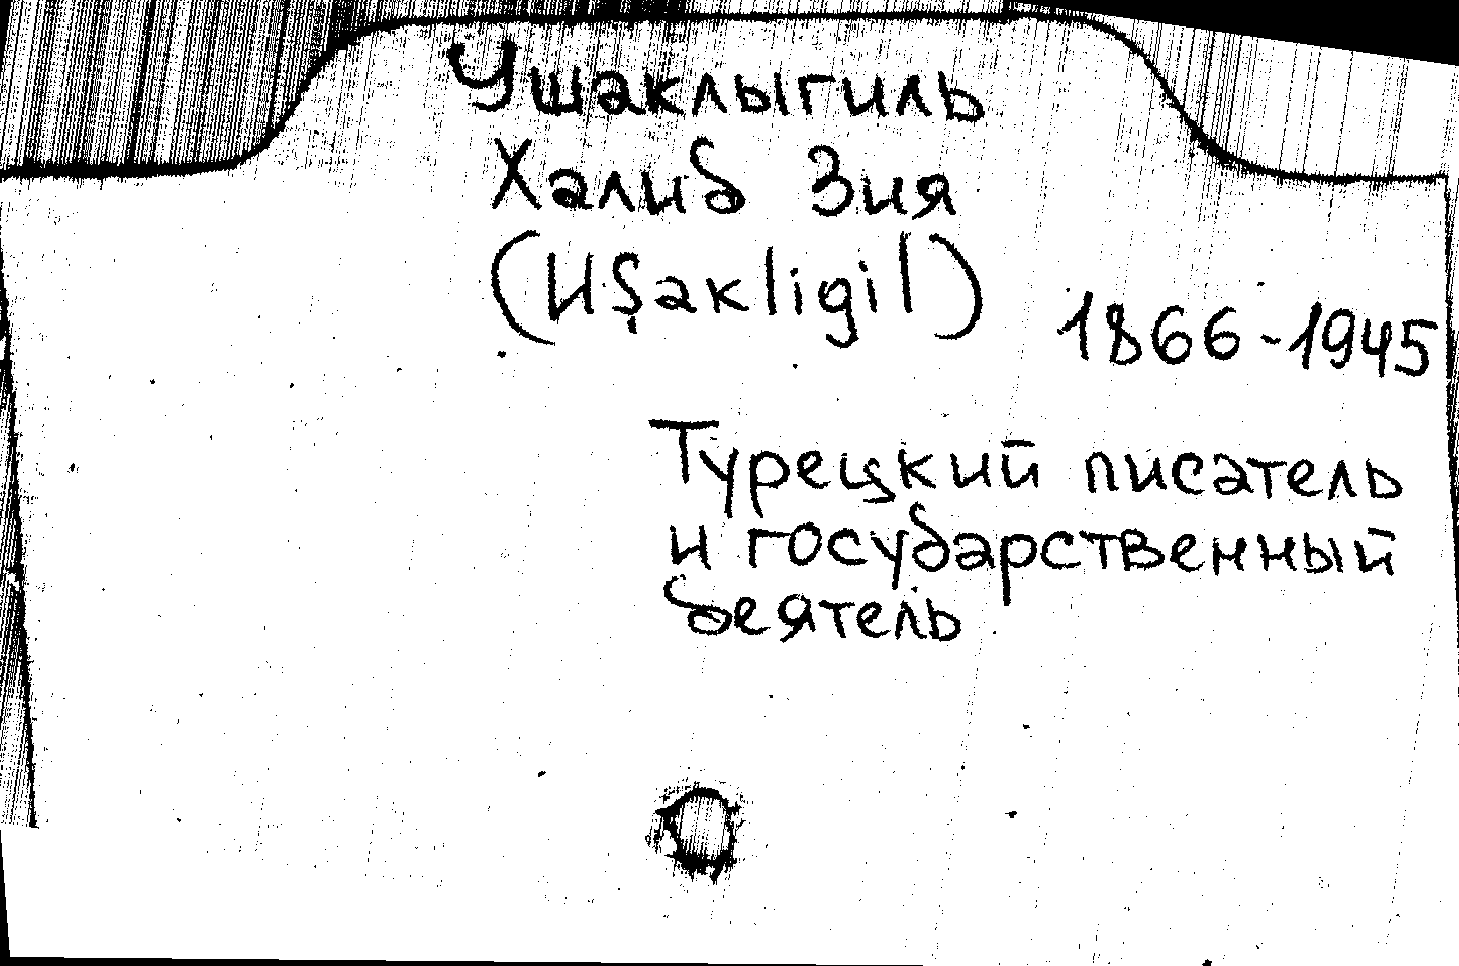 Ушаклыгиль
Халид Зия
(Uşakligil)
1866-1945
Турецкий писатель
и государственный
деятель